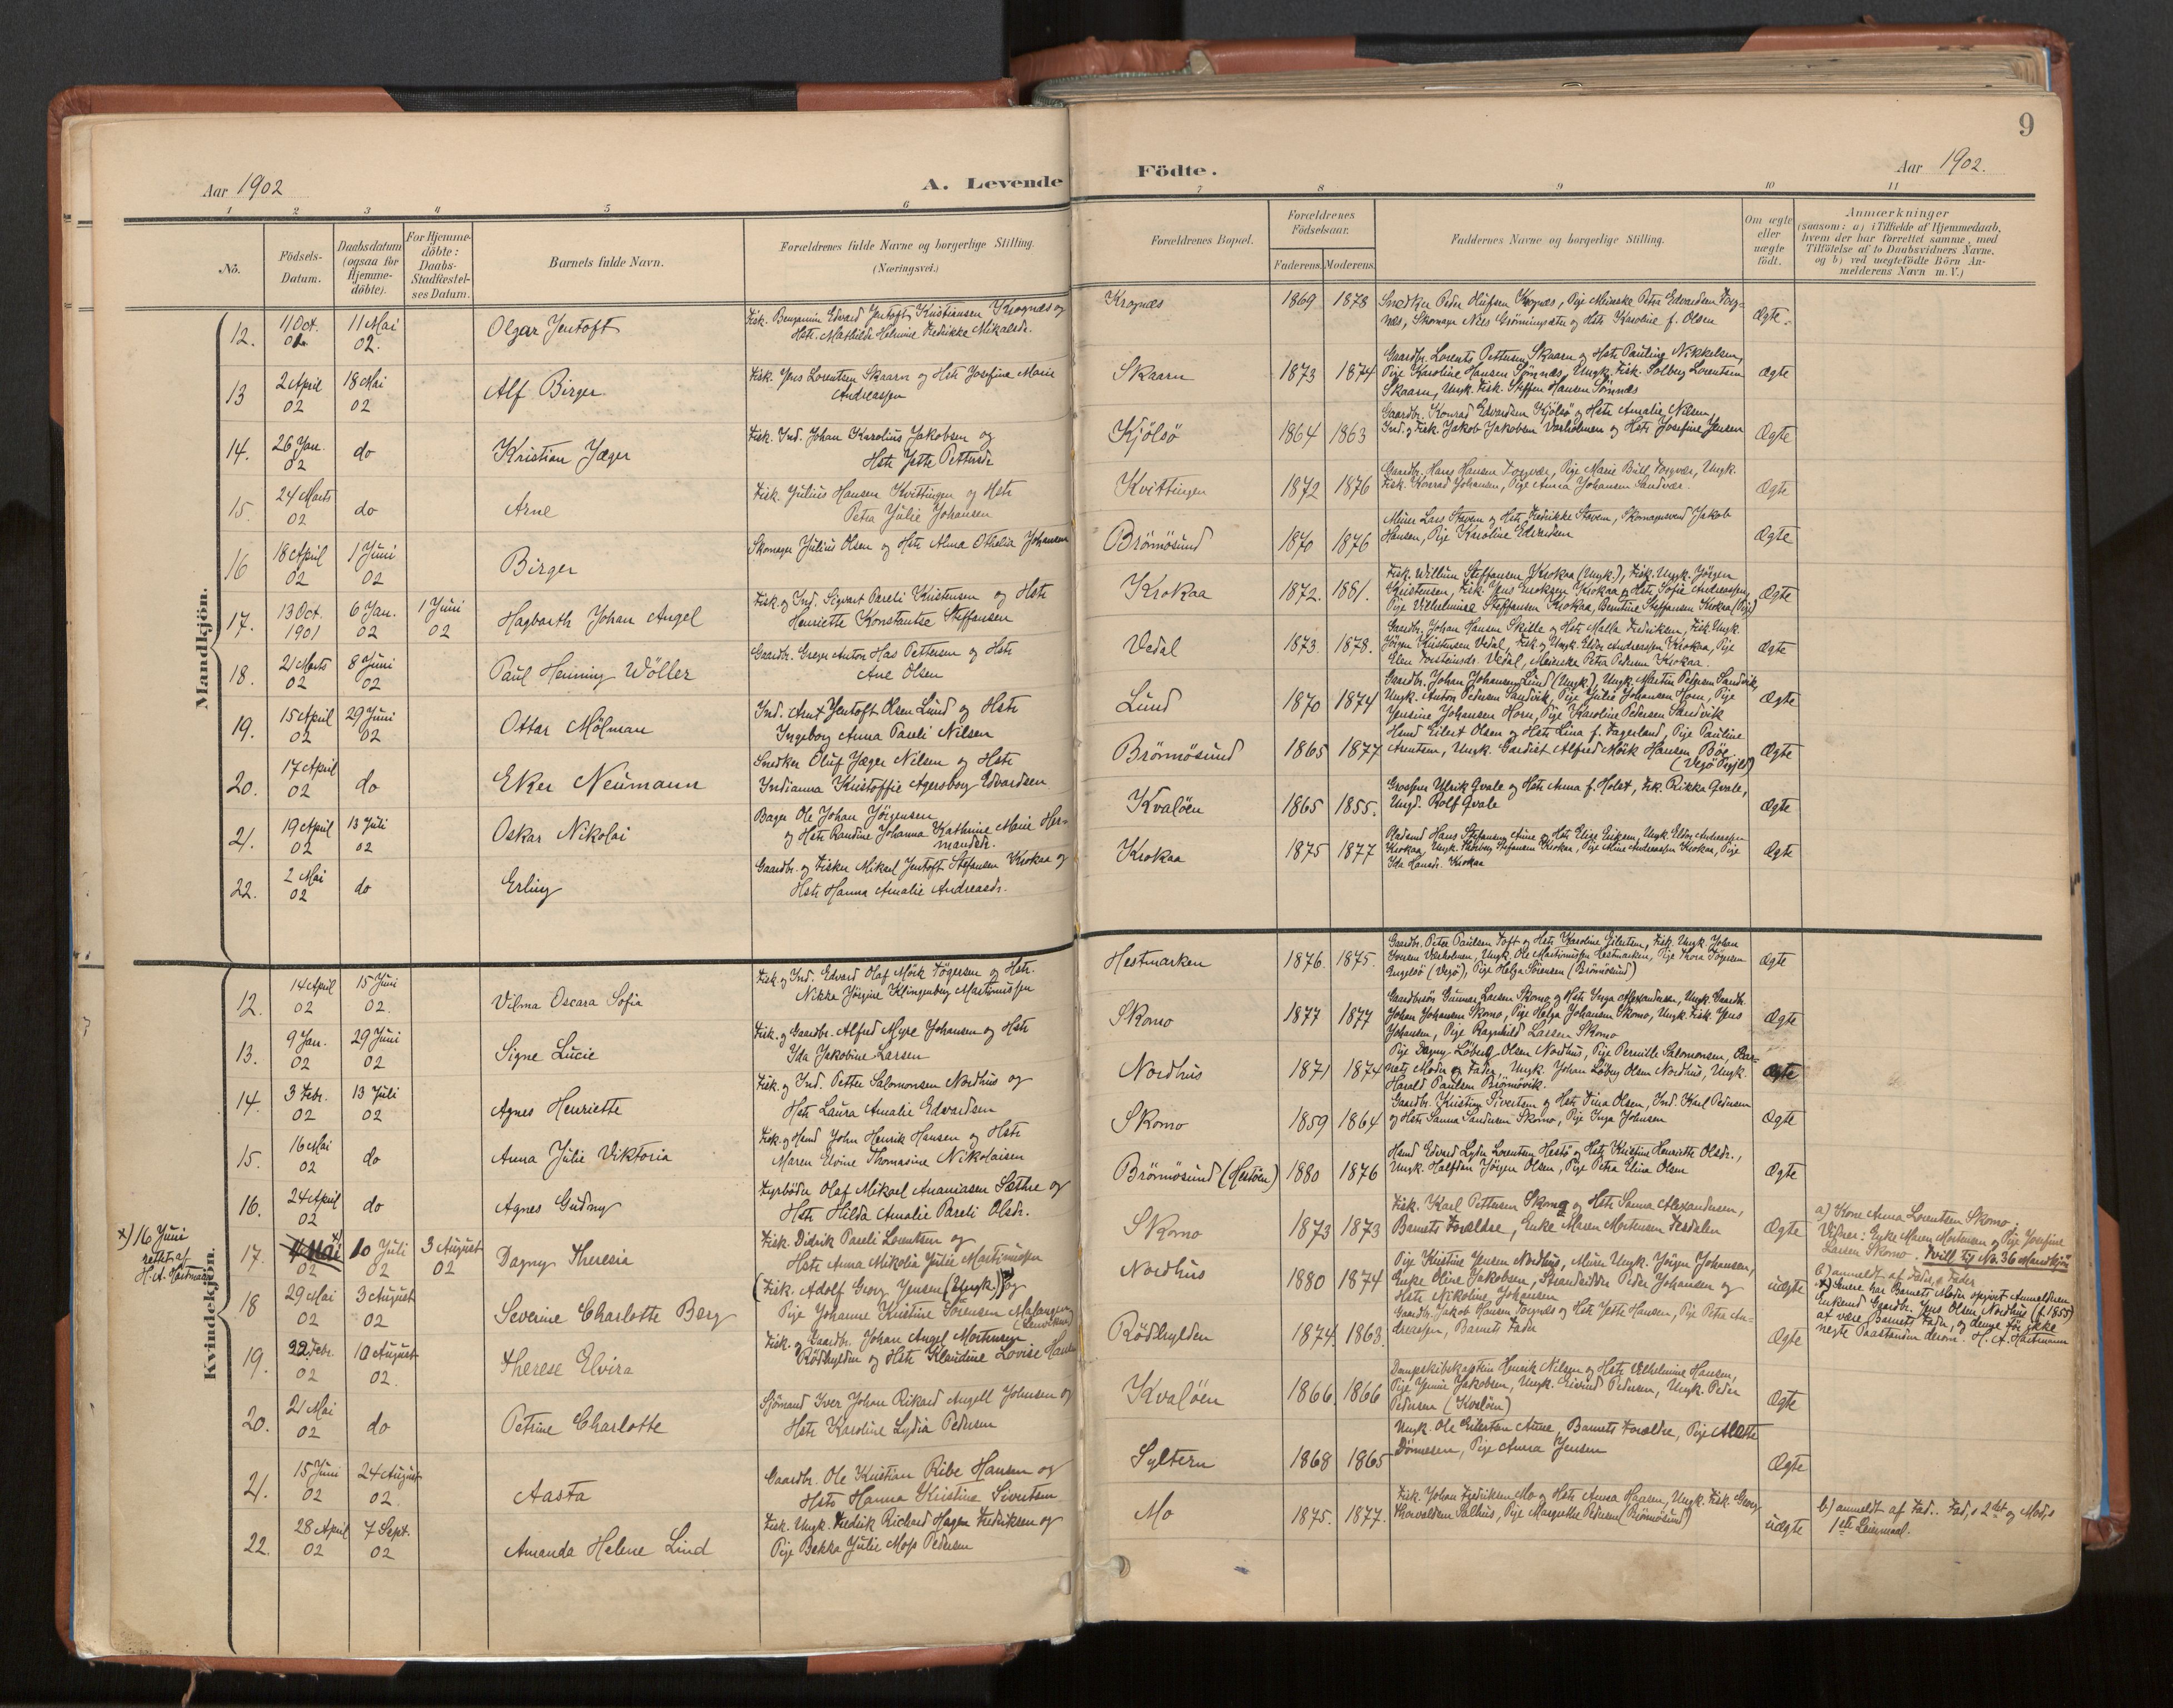 Aar 1902
A. Levende
1 2 3 4 5 6
No.
Födsels-
Datum.
Daabsdatum
(ogsaa for
Hjemme-
döbte).
For Hjemme-
döbte:
Daabs-
Stadfæstel-
ses Datum.
Barnets fulde Navn.
Forældrenes fulde Navne og borgerlige Stilling.
(Næringsvei.)
Mandkjön.
12. 11 Oct. 11 Mai Olgar Jentoft Fisk. Benjamin Edvard Jentoft Kristiansen Krognæs og
01 02. Hstr. Mathilde Helmine Fredrikke Mikalsdr.
13 2 April 18 Mai Alf Birger Fisk. Jens Lorentsen Skaarn og Hstr Josefine Marie
02 02 Andreassen
14. 26 Jan. do Kristian Jæger Fisk. Ind. Johan Karolius Jakobsen og
02 Hstr Jette Pettersdr
15. 24 Marts do Arne Fisk. Julius Hansen Kvittingen og Hstr
02 Petra Julie Johansen
16 18 April 1 Juni Birger Skomager Julius Olsen og Hstr Alma Othelia Johansen
02 02
17. 13 Oct. 6 Jan. 1 Juni Hagbarth Johan Angel Fisk. og Ind. Sigvart Pareli Kristensen og Hstr
1901 02 02 Henriette Konstantse Steffansen
18. 21 Marts 8 Juni Paul Henning Wöller Gaardbr. Greger Anton Has Pettersen og Hstr
02 02 Ane Olsen
19. 15 April 29 Juni Ottar Mölman Ind. Arnt Jentoft Olsen Lund og Hstr
02 02 Ingeborg Anna Pareli Nilsen
20. 17 April do Eker Neumann Snedker Oluf Jæger Nilsen og Hstr
02 Indianna Kristoffie Agersborg Edvardsen
21. 19 April 13 Juli Oskar Nikolai Bager Ole Johan Jörgensen
02 02 og Hstr Randine Johanna Kathrine Marie Her-
mandsdr.
22. 2 Mai do Erling Gaardbr. og Fisker Mikael Jentoft Stefansen Krokaa og
02 Hstr Hanna Amalie Andreasdr.
Kvindekjön.
12. 14 April 15 Juni Vilma Oscara Sofie Fisk. og Ind. Edvard Olaf Mörk Tögersen og Hstr.
02 02. Nikka Jörgine Klingenberg Martinussen
13. 9 Jan. 29 Juni Signe Lucie Fisk. og Gaardbr. Alfred Myre Johansen og Hstr
02 02 Ida Jakobine Larsen
14. 3 Febr. 13 Juli Agnes Henriette Fisk. og Ind. Petter Salomonsen Nordhus og
02 02 Hstr Laura Amalie Edvardsen
15. 16 Mai do Anna Julie Viktoria Fisk. og Hmd John Henrik Hansen og Hstr
02 Maren Elvine Thomasine Nikolaisen
16. 24 April do Agnes Gudny Fyrböder Olaf Mikael Ananiasen Sæthre og
02 Hstr Hilda Amalie Pareli Olsdr.
x) 16 Juni
rettet af
H. A. Hartmann
17. 4 Mai x) 10 Juli 3 August Dagny Theresia Fisk. Didrik Pareli Lorentsen og
02 02 02 Hstr Anna Mikolia Julie Martinussen
18 29 Mai 3 August Severine Charlotte Berg (Fisk. Adolf Georg Jensen (Ungk.)) og
02 02 Pige Johanne Kristine Sörensen Malangen
19. 22 Febr. 10 August Therese Elvira Fisk. og Gaardbr. Johan Angel Mortensen
02 02. Rödhylden og Hstr Klaudine Lovise Hansen
20. 21 Mai do Petrine Charlotte Sjömand Iver Johan Rikard Angell Johnsen og
02 Hstr Karoline Lydia Pedersen
21. 15 Juni 24 August Aasta Gaardbr. Ole Kristian Ribe Hansen og
02 02. Hstr Hanna Kristine Sivertsen
22. 28 April 7 Sept. Amanda Helene Lind Fisk. Ungk. Fredrik Richard Hagen Fredriksen og
02 02 Pige Bekka Julie Moss Pedersen
9
Födte.
Aar 1902.
7 8 9 10 11
Forældrenes Bopæl.
Forældrenes
Födselsaar.
Faderens. Moderens.
Faddernes Navne og borgerlige Stilling.
Om ægte
eller
uægte
födt.
Anmærkninger
(saasom: a) i Tilfælde af Hjemmedaab,
hvem der har forrettet samme, med
Tilföielse af to Daabsvidners Navne,
og b) ved uægtefödte Börn An-
melderens Navn m. V.)
Krognæs 1869 1878 Snedker Peder Olufsen Krognæs, Pige Meierske Petra Edvardsen Torg-
næs, Skomager Nils Grönningsæter og Hstr Karoline f. Olsen Ægte.
Skaarn 1873 1874 Gaardbr. Lorents Pettersen Skaarn og Hstr Pauline Nikkelsen,
Pige Karoline Hansen Sömnæs, Ungk. Fisk. Solberg Lorentsen Ægte
Skaarn, Ungk. Fisk. Steffen Hansen Sömnæs
Kjölsö 1864 1863 Gaardbr. Konrad Edvardsen Kjölsö og Hstr Amalie Nilsen,
Ind. og Fisk. Jakob Jakobsen Varholmen og Hstr Josefine Jensen Ægte
Kvittingen 1872 1876 Gaardbr. Hans Hansen Torgvær, Pige Marie Bill Torgvær, Ungk.
Fisk. Konrad Johansen, Pige Anna Johansen Sandvær. Ægte
Brönnösund 1870 1876 Murer Lars Staven og Hstr Fredrikke Staven, Skomagersvend Jakob
Hansen, Pige Karoline Edvardsen Ægte
Krokaa 1872. 1881. Fisk. Willum Steffansen Krokaa (Ungk.), Fisk. Ungk. Jörgen
Kristensen, Fisk. Jens Enoksen Krokaa og Hstr Sofie Andreassen, Ægte
Pige Vilhelmine Steffansen Krokaa, Berntine Steffansen Krokaa (Pige)
Vedal 1873. 1878. Gaardbr. Johan Hansen Skille og Hstr Malla Fredriksen, Fisk. Ungk.
Jörgen Kristensen Vedal, Fisk. og Ungk. Eldor Andreassen Krokaa, Pige Ægte
Elen Torsteinsdr. Vedal, Meierske Petra Pedersen Krokaa.
Lund 1870 1874 Gaardbr. Johan Johansen Lund (Ungk.), Ungk. Martin Pedersen Sandvik,
Ungk. Anton Pedersen Sandvik, Pige Julie Johansen Horn, Pige Ægte
Jensine Johansen Horn, Pige Karoline Pedersen Sandvik
Brönnösund 1865 1877 Hmd Eilert Olsen og Hstr Lina f. Fagerland, Pige Pauline
Arntsen, Ungk. Gardist Alfred Mörk Hansen Böe Ægte
Kvalöen 1865 1855. Grosser Ulrik Qvale og Hstr Anna f. Holst, Frk. Rikka Qvale,
Ungd. Rolf Qvale Ægte
Krokaa 1875 1877 Pladsmd Hans Stefansen Aune og Hstr Elise Eriksen, Ungk. Eldor Andreassen
Krokaa, Ungk. Thorberg Stefansen Krokaa, Pige Mine Andreassen Krokaa, Pige Ægte
Ida Hansdr. Krokaa
Hestmarken 1876. 1875. Gaardbr. Peter Paulsen Toft og Hstr Karoline Eilertsen, Fisk. Ungk. Johan
Ungk. Ole Martinussen Hestmarken, Pige Thora Tögersen Ægte
Engelsö (Vegö), Pige Helga Sörensen (Brönnösund)
Skomo 1877 1877 Gaardbrsön Gunnar Larsen Skomo og Hstr Inga Alexandersen, Ungk. Gaardbr.
Johan Johansen Skomo, Pige Helga Johansen Skomo, Ungk. Fisk. Jens Ægte
Johansen, Pige Ragnhild Larsen Skomo
Nordhus 1871 1874 Pige Dagny Löberg Olsen Nordhus, Pige Pernille Salomonsen, Bar-
nets Moder og Fader, Ungk. Johan Löberg Olsen Nordhus, Ungk. Ægte
Harald Paulsen Brönnövik.
Skomo 1859 1864 Gaardbr. Kristian Sivertsen og Hstr Tina Olsen, Ind. Karl Pedersen
og Hstr Sanna Sandersen Skomo, Pige Inga Johnsen Ægte
Brönnösund (Hestöen) 1880 1876 Hmd Edvard Lyder Lorentsen Hestö og Hstr Kristine Henriette Olsdr.,
Ungk. Halfdan Jörgen Olsen, Pige Petra Elise Olsen Ægte
Skomo 1873 1873 Fisk. Karl Pettersen Skomo og Hstr Sanna Alexandersen,
Barnets Forældre, Enke Maren Mortensen Tesdalen Ægte
a) Kone Anna Lorentsen Skomo.
Vidner: Enke Maren Mortensen og Pige Josefine
Larsen Skomo. Tvill. til No. 36 Mandkjön
Nordhus 1880 1874 Pige Kristine Jensen Nordhus, Murer Ungk. Jörgen Johansen,
Enke Oline Jakobsen, Strandsidder Peder Johansen og uægte
Hstr Nikoline Johansen
b) anmeldt af Fader. Fader
x) Senere har Barnets Moder opgivet Anmelderen
Enkemd Gaardbr. Jens Olsen, Nordhus (f. 1855)
at være Barnets Fader, og denne tör ikke
negte Paastanden derom. H. A. Hartmann
Rödhylden 1874. 1863. Gaardbr. Jakob Hansen Torgnæs og Hstr Jette Hansen, Pige Petra An-
dreassen, Barnets Fader Ægte
Kvalöen 1866. 1866 Dampskibskaptein Henrik Nilsen og Hstr Vilhelmine Hansen,
Pige Jennie Jakobsen, Ungk. Eivind Pedersen, Ungk. Peder Ægte
Pedersen (Kvalöen)
Syltern 1868 1865 Ungk. Ole Eilertsen Aune, Barnets Forældre, Pige Alette
Dönnesen, Pige Anna Jensen Ægte
Mo 1875. 1877. Fisk. Johan Fredriksen Mo og Hstr Anna Hansen, Ungk. Fisk. Georg
Thorvaldsen Salhus, Pige Margrethe Pedersen (Brönnösund) uægte
b) anmeldt af Fad.. Fad.s 2det og Mod.s
1ste Leiermaal.